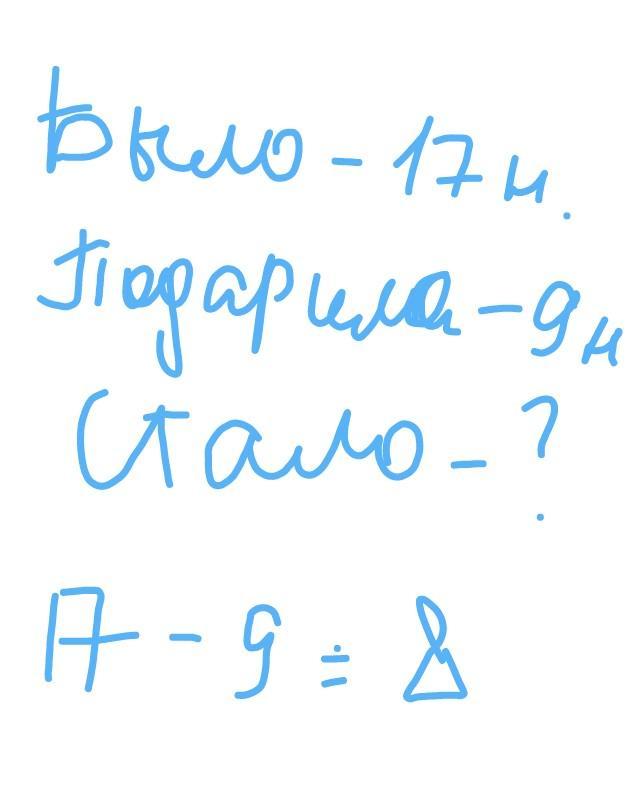 Было - 17 н.
Подарила - 9 н
Стало - ?
17 - 9 = 8